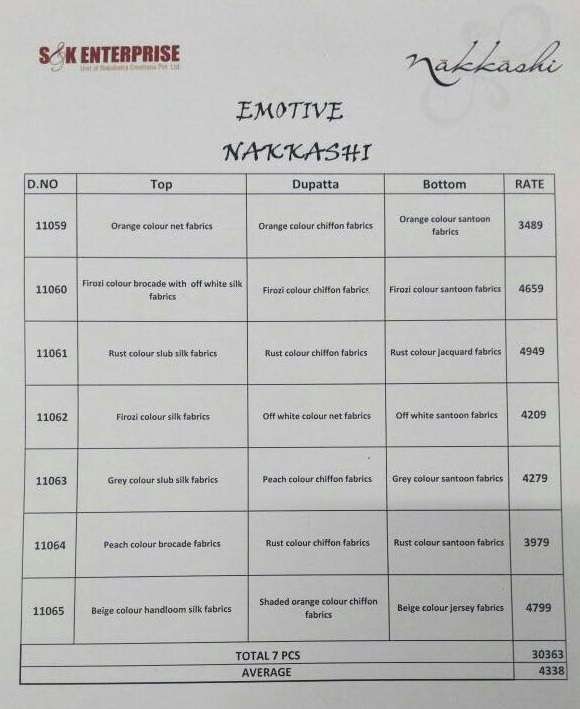 S&K ENTERPRISE
Unit of Nakshatra Creations Pvt. Ltd
nakkashi
EMOTIVE
NAKKASHI
D.NO Top Dupatta Bottom RATE
11059 Orange colour net fabrics Orange colour chiffon fabrics Orange colour santoon fabrics 3489
11060 Firozi colour brocade with off white silk fabrics Firozi colour chiffon fabrics Firozi colour santoon fabrics 4659
11061 Rust colour slub silk fabrics Rust colour chiffon fabrics Rust colour jacquard fabrics 4949
11062 Firozi colour silk fabrics Off white colour net fabrics Off white santoon fabrics 4209
11063 Grey colour slub silk fabrics Peach colour chiffon fabrics Grey colour santoon fabrics 4279
11064 Peach colour brocade fabrics Rust colour chiffon fabrics Rust colour santoon fabrics 3979
11065 Beige colour handloom silk fabrics Shaded orange colour chiffon fabrics Beige colour jersey fabrics 4799
TOTAL 7 PCS 30363
AVERAGE 4338